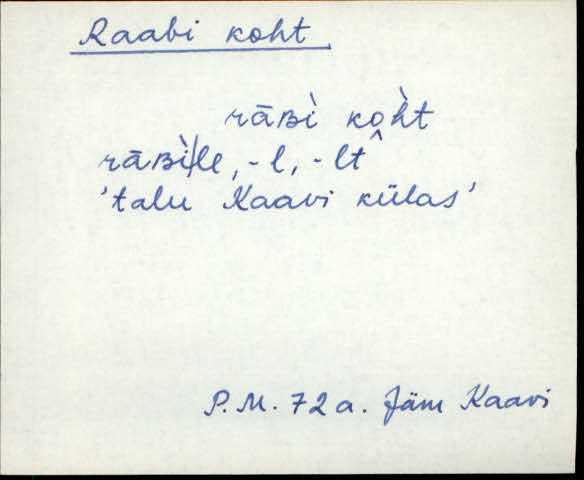 Raabi koht
rāʙì ko̭h̀t
rāʙì|le, -l, -lt
'talu Kaavi külas'
P.M. 72 a. Jäm Kaavi